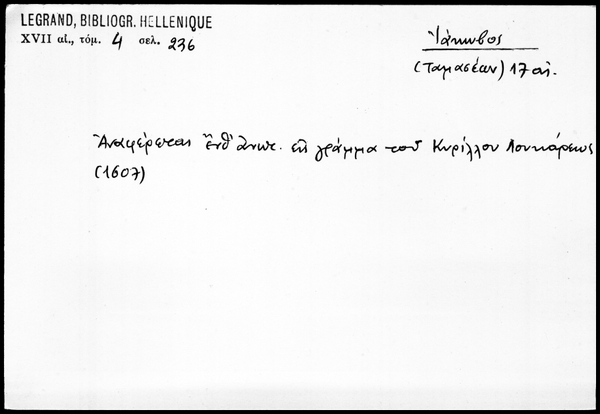 LEGRAND, BIBLIOGR. HELLENIQUE
XVII αἰ., τόμ. 4 σελ. 236
Ἰάκωβος
(Ταμασέων) 17 αἰ.
Ἀναφέρεται ἔνθ' ἀνωτ. εἰς γράμμα τοῦ Κυρίλλου Λουκάρεως
(1607)